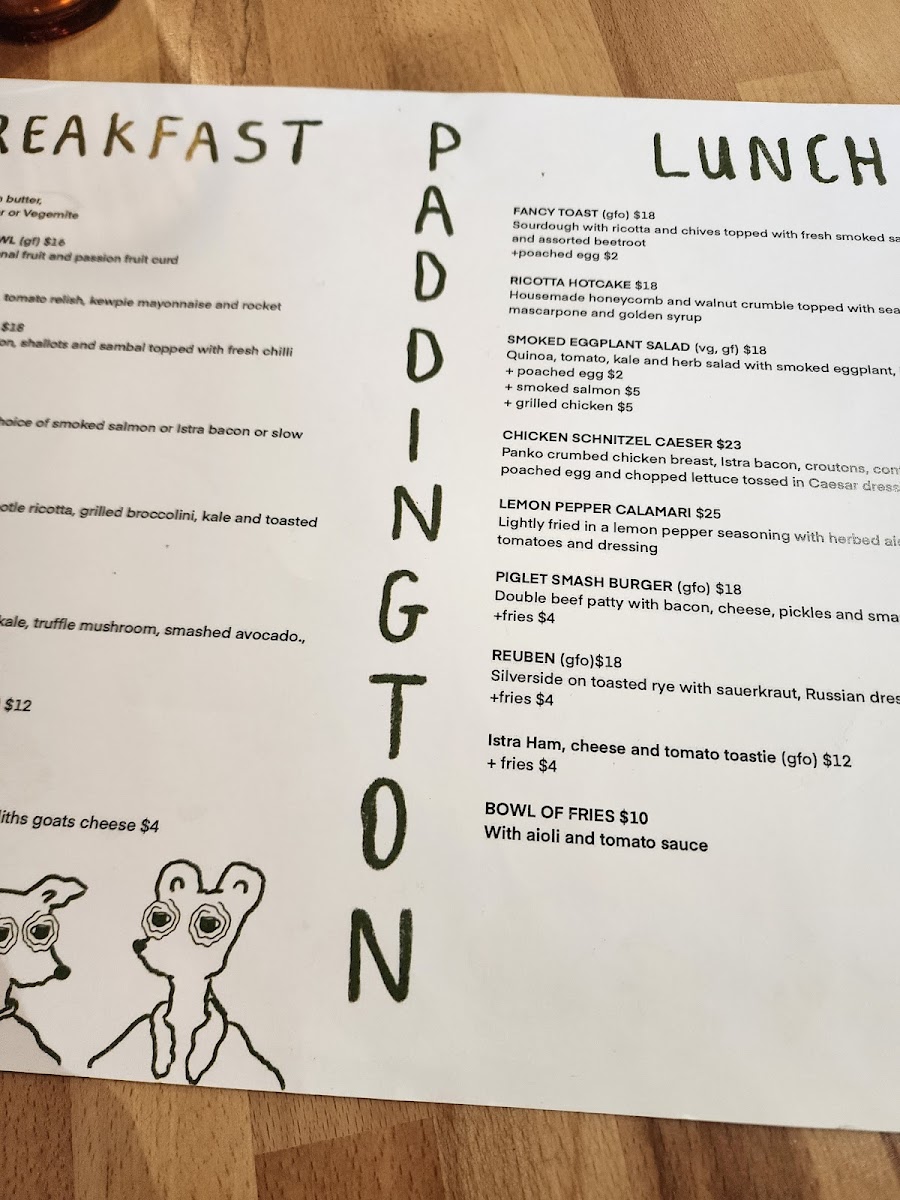 REAKFAST
butter,
or Vegemite
(gf) $16
fruit and passion fruit curd
tomato relish, kewpie mayonnaise and rocket
$18
shallots and sambal topped with fresh chilli
of smoked salmon or Istra bacon or slow
ricotta, grilled broccolini, kale and toasted
kale, truffle mushroom, smashed avocado.,
$12
goats cheese $4
PADDINGTON
LUNCH
FANCY TOAST (gfo) $18
Sourdough with ricotta and chives topped with fresh smoked
and assorted beetroot
+poached egg $2
RICOTTA HOTCAKE $18
Housemade honeycomb and walnut crumble topped with
mascarpone and golden syrup
SMOKED EGGPLANT SALAD (vg, gf) $18
Quinoa, tomato, kale and herb salad with smoked eggplant,
+ poached egg $2
+ smoked salmon $5
+ grilled chicken $5
CHICKEN SCHNITZEL CAESER $23
Panko crumbed chicken breast, Istra bacon, croutons,
poached egg and chopped lettuce tossed in Caesar
LEMON PEPPER CALAMARI $25
Lightly fried in a lemon pepper seasoning with herbed
tomatoes and dressing
PIGLET SMASH BURGER (gfo) $18
Double beef patty with bacon, cheese, pickles and
+fries $4
REUBEN (gfo)$18
Silverside on toasted rye with sauerkraut, Russian
+fries $4
Istra Ham, cheese and tomato toastie (gfo) $12
+ fries $4
BOWL OF FRIES $10
With aioli and tomato sauce